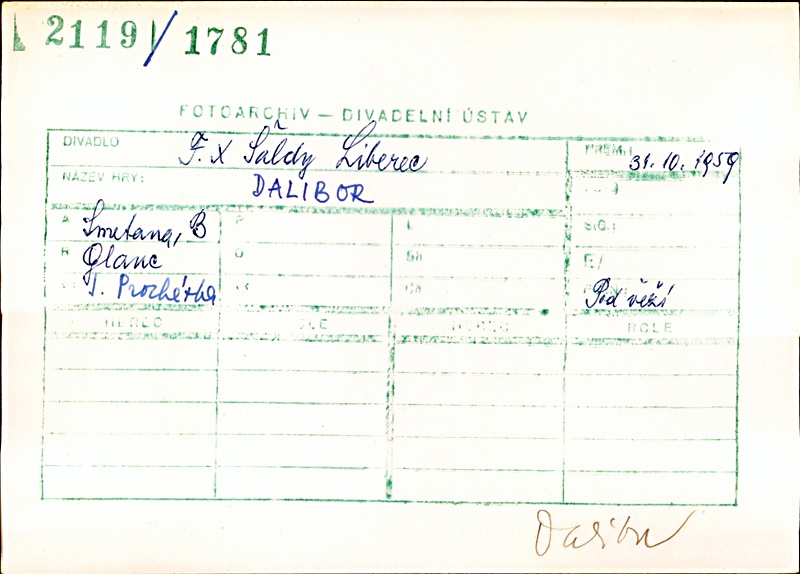 2119/1781
FOTOARCHIV — DIVADELNÍ ÚSTAV
DIVADLO F. X Šaldy Liberec PREM.: 31. 10. 1959
NÁZEV HRY: DALIBOR
A Smetana, B P L SG:
R Glanc O Sb E/
T. Procházka Pod věží
HEREC ROLE HEREC ROLE
Dalibor